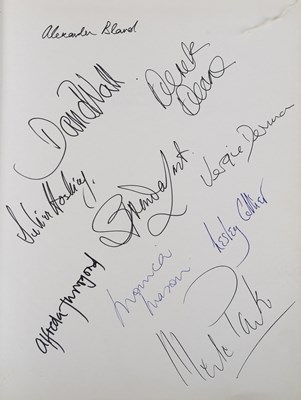 Alexander Bland
David Wall
Derek
Deane
Vergie Derman
Julian Hosking
Brenda Last
Lesley Collier
Monica
Mason
Alfreda Thorogood
Merle Park